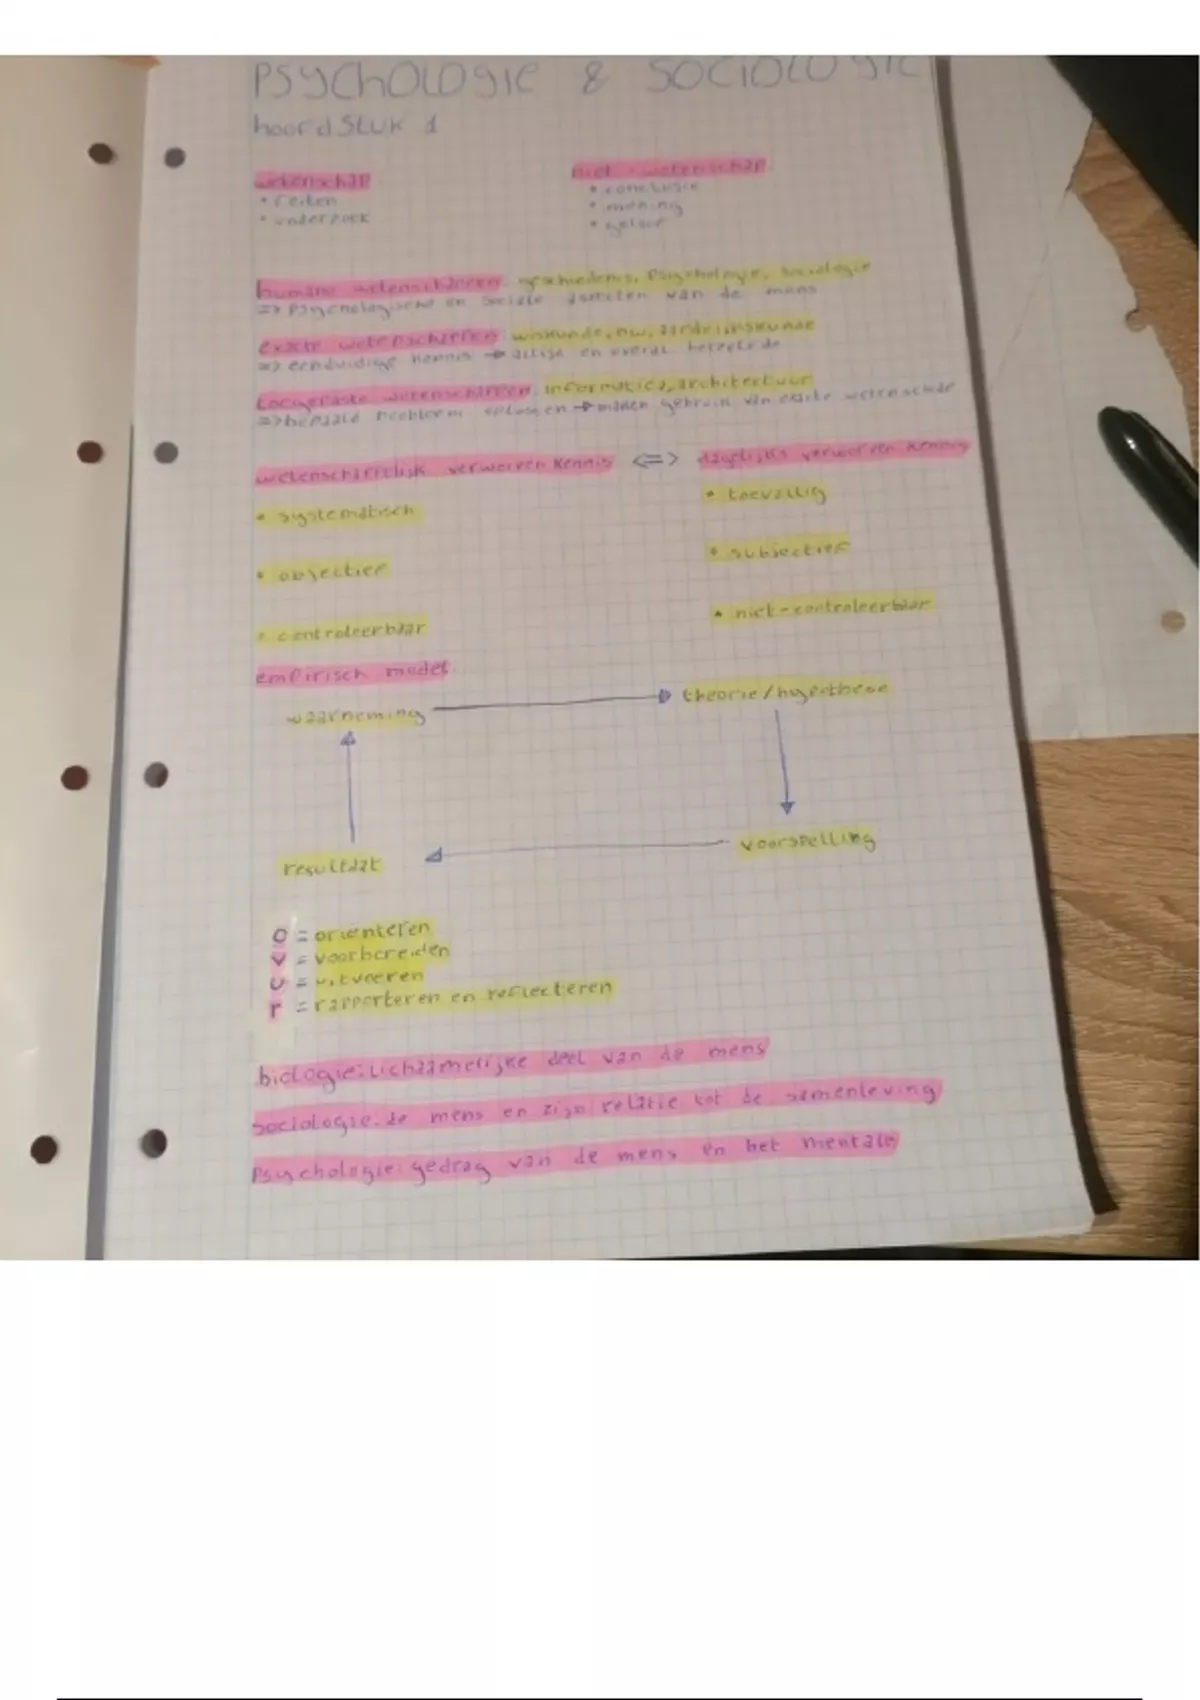 PSYCHOLOGIE & SOCIOLOGIE
hoofdstuk 1
wetenschap
• feiten
• onderzoek
niet-wetenschap
• conclusie
• mening
• geloof
humane wetenschappen: geschiedenis, psychologie, sociologie
=> psychologische en sociale aspecten van de mens
exacte wetenschappen: wiskunde, nw, aardrijkskunde
=> eenduidige kennis → altijd en overal hetzelfde
toegepaste wetenschappen: informatica, architectuur
=> bepaald probleem oplossen → maken gebruik van exacte wetenschap
wetenschappelijk verworven kennis <=> dagelijks verworven kennis
• systematisch
• toevallig
• objectief
• subjectief
• controleerbaar
• niet-controleerbaar
empirisch model
waarneming → theorie/hypothese
resultaat ← voorspelling
o = oriënteren
v = voorbereiden
u = uitvoeren
r = rapporteren en reflecteren
biologie: lichaamelijke deel van de mens
sociologie: de mens en zijn relatie tot de samenleving
psychologie: gedrag van de mens en het mentale